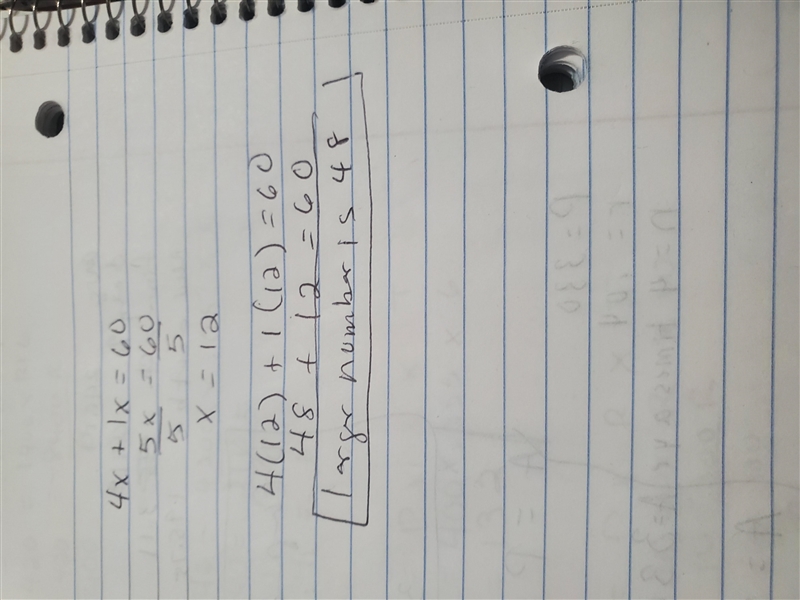 4x + 1x = 60
5x = 60
5 5
x = 12
4(12) + 1(12) = 60
48 + 12 = 60
larger number is 48